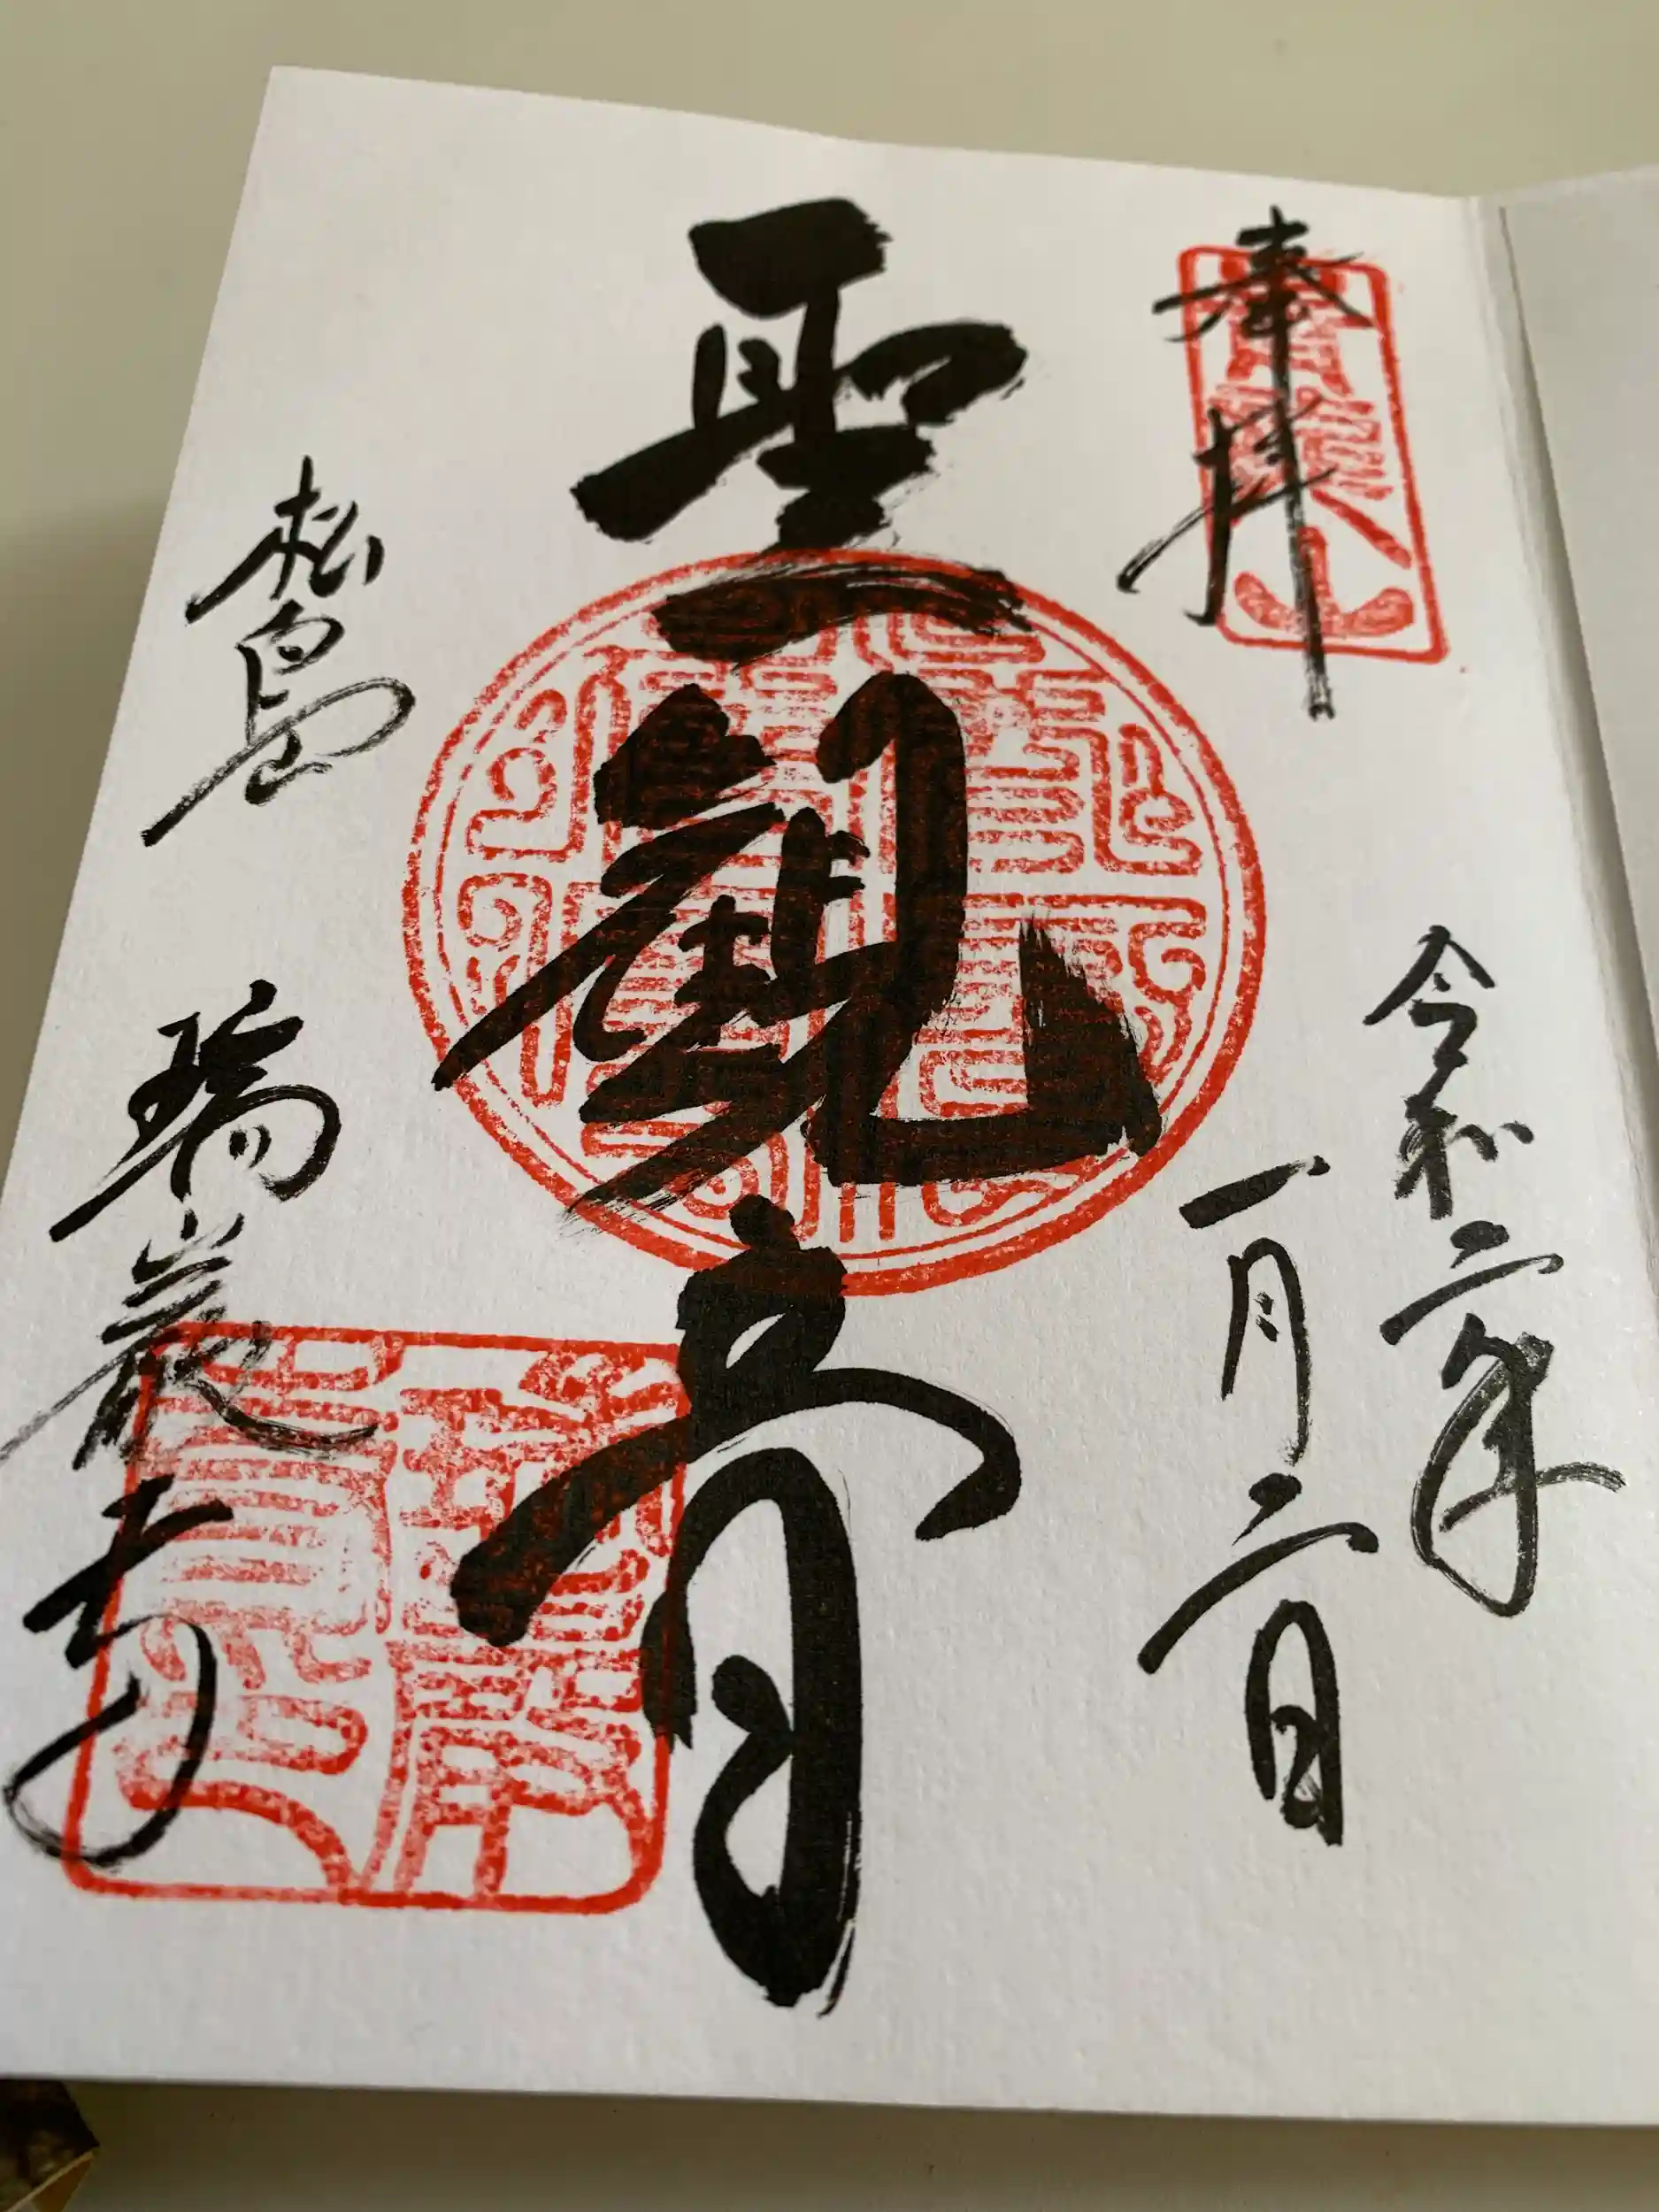 奉拝
令和二年
一月二日
聖観音
松島
瑞巌寺